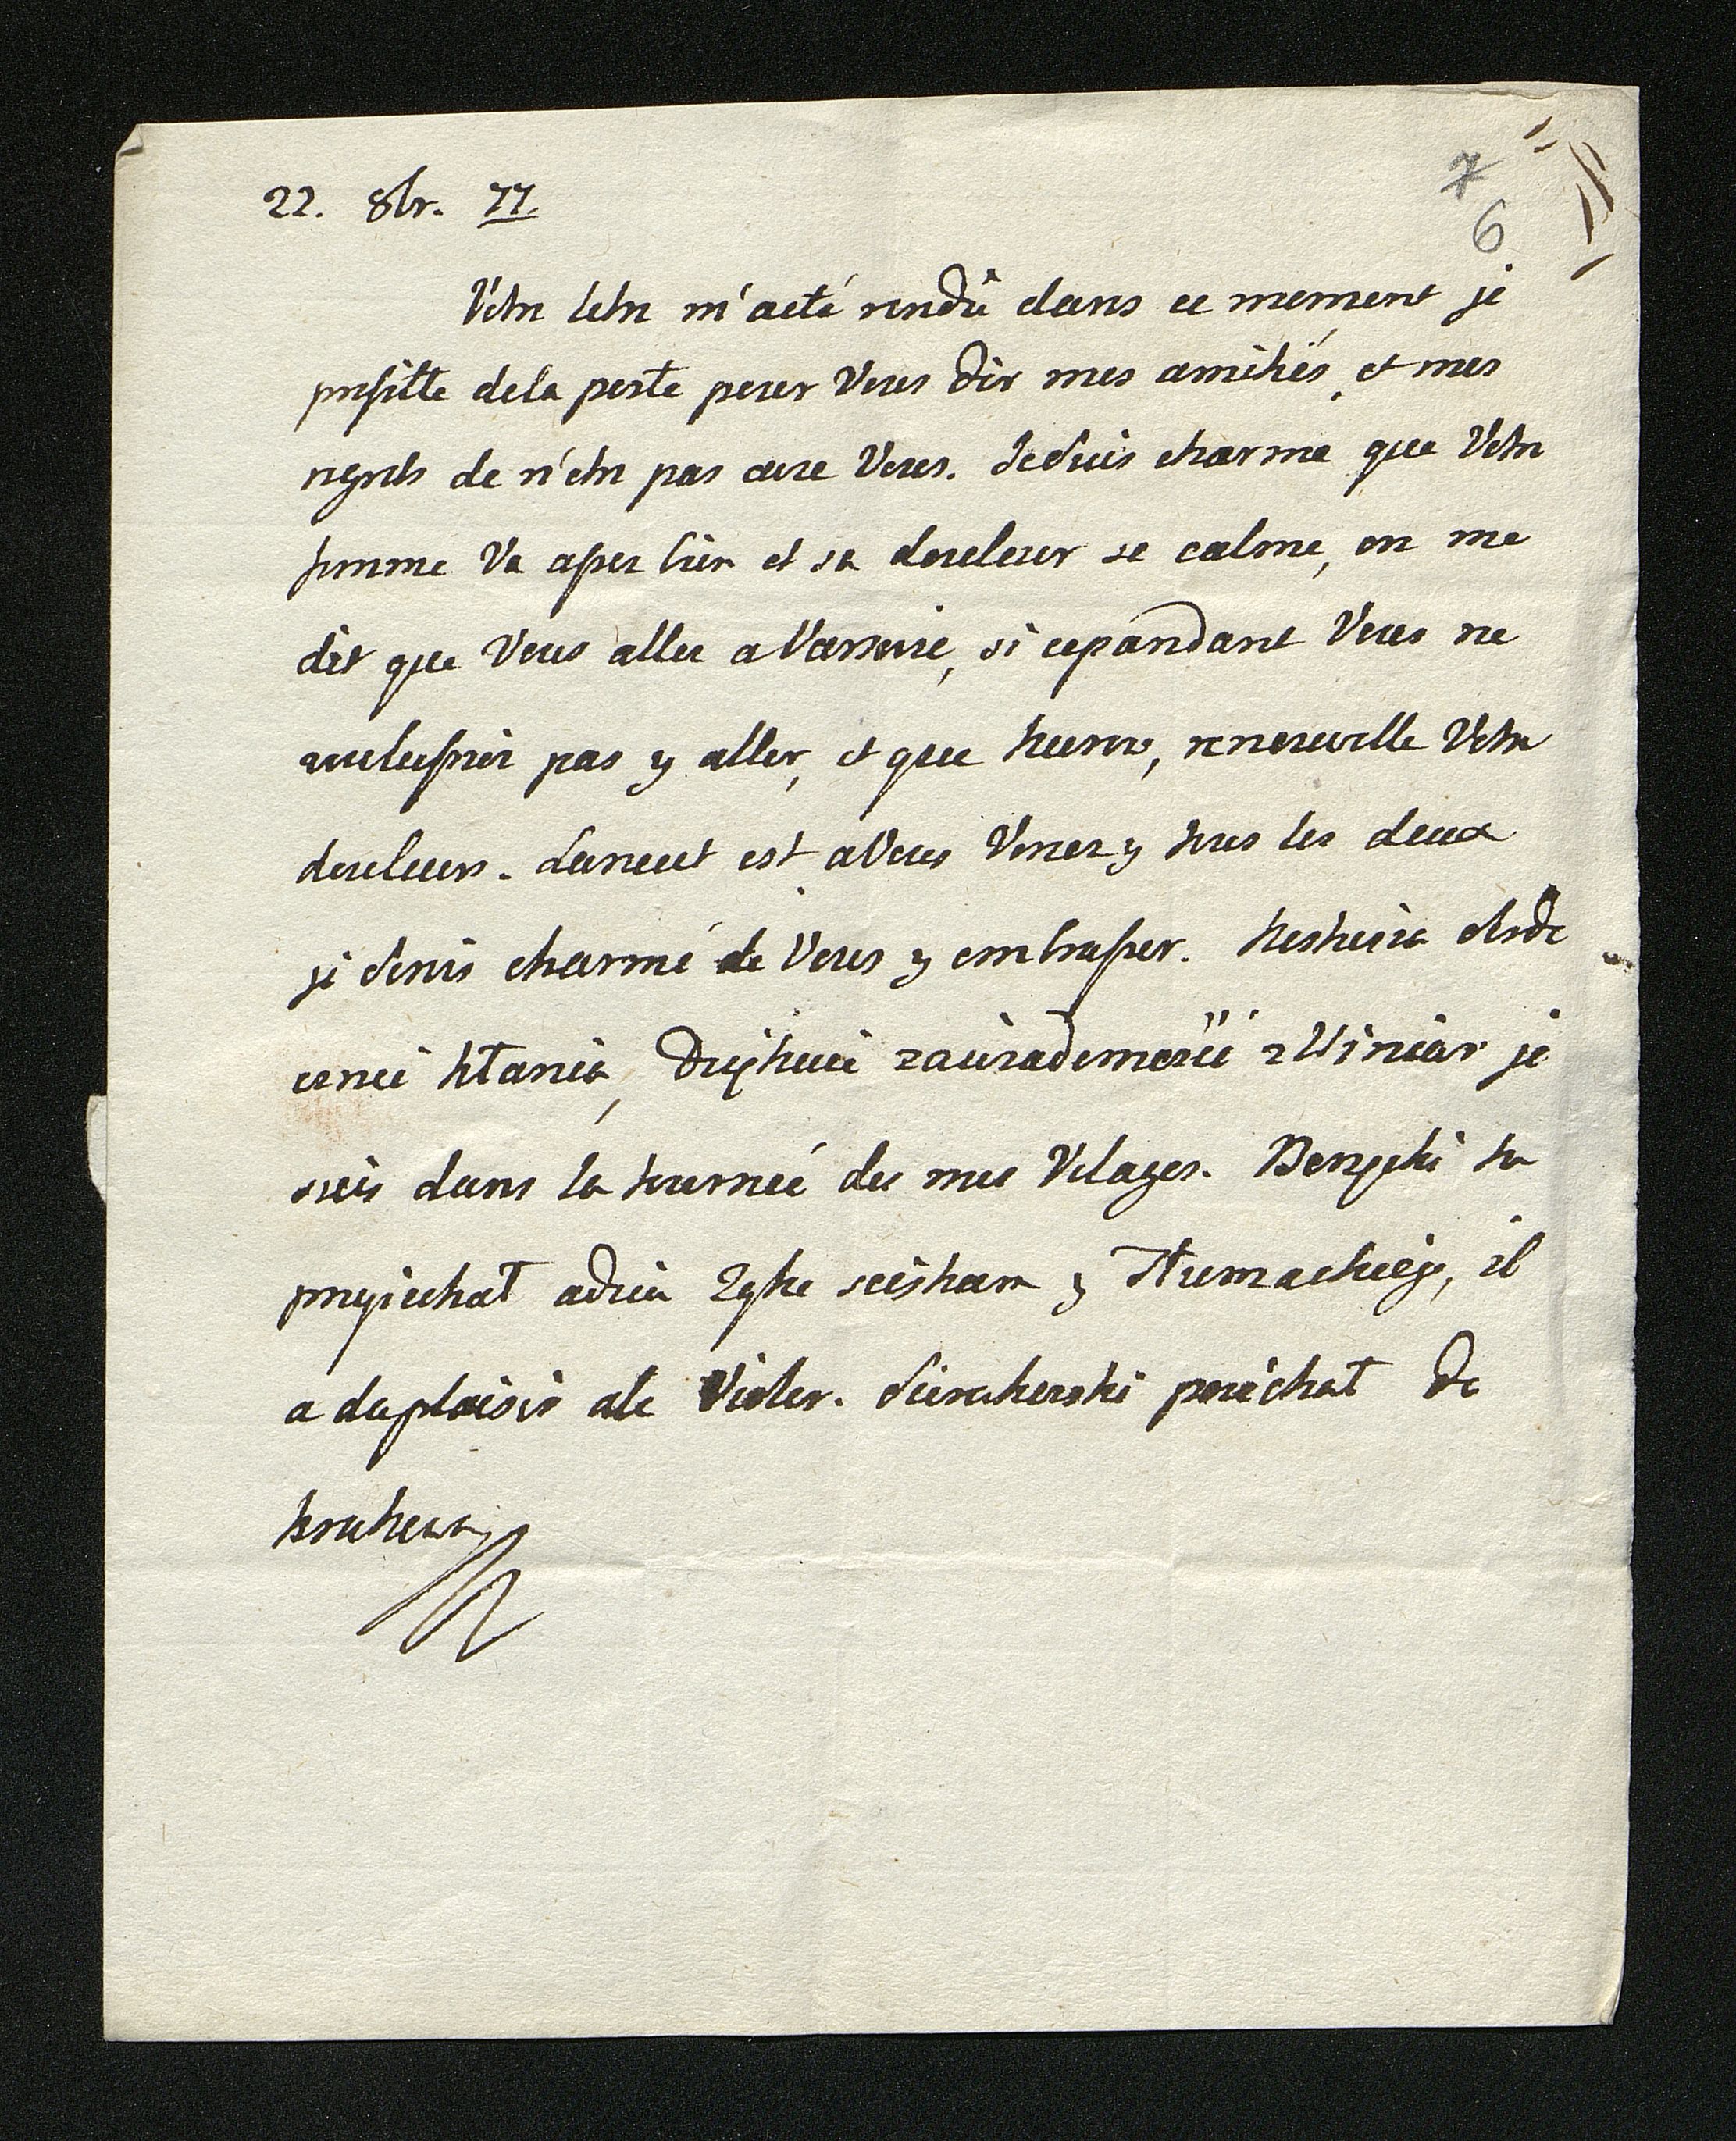 22. 8br. 77.
7
6
Votre letre m'aeté rendû dans ce moment je
profitte dela poste pour Vous dir mes amitiés, et mes
regrets de n'etre pas avec Vous. Jesuis charme que Votre
femme Va assez bien et sa douleur se calme, on me
dit que Vous allez aVarsovie, si cepandant Vous ne
voulussiez pas y aller, et que renouvelle Votre
douleurs. Lancut est aVous Venez y tous les deux
je serais charmé de Vous y embrasser.
Kłania, Dziękuie zawiadomość z Winiar je
suis dans la tournée des mes Vilages. to
przyiechał Tłumackiego, il
a duplaisir ale Violer. poiechał Do
Krakowa